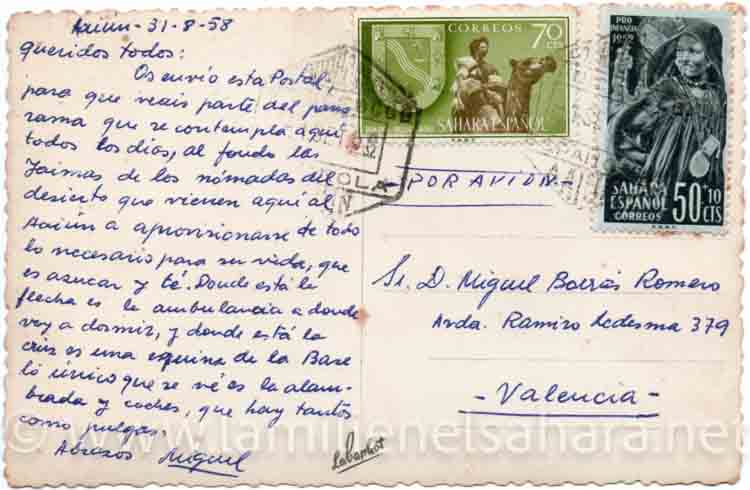 Aaiun-31-8-58
Queridos todos:
Os envio esta Postal,
para que veais parte del pano
rama que se contempla aqui
todos los dias, al fondo las
Jaimas de los nómadas del
desierto que vienen aquí al
Aaiún a aprovisionarse de todo
lo necesario para su vida, que
es azucar y té. Donde está la
flecha es la ambulancia a donde
voy a dormir, y donde está la
cruz es una esquina de la Base
lo único que se vé es la alam-
brada y coches, que hay tantos
como pulgas.
Abrazos Miguel
CORREOS
70
CTS
SAHARA ESPAÑOL
PRO
INFANCIA
1952
SAHARA
ESPAÑOL
CORREOS
50+10
CTS
-POR AVION-
Sr. D. Miguel Borrás Romero
Avda. Ramiro Ledesma 379
-Valencia-
© www.lamilienelsahara.net